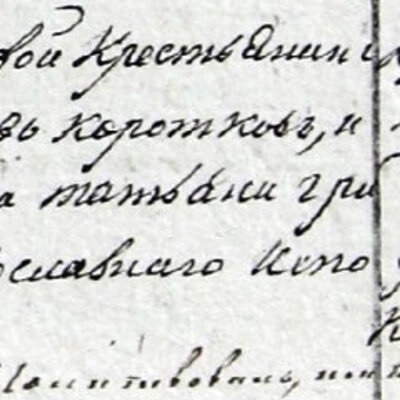 вой Крестьянин
въ коротковъ, и
а татьяни гри
ославнаго испо
Молитвовалъ,